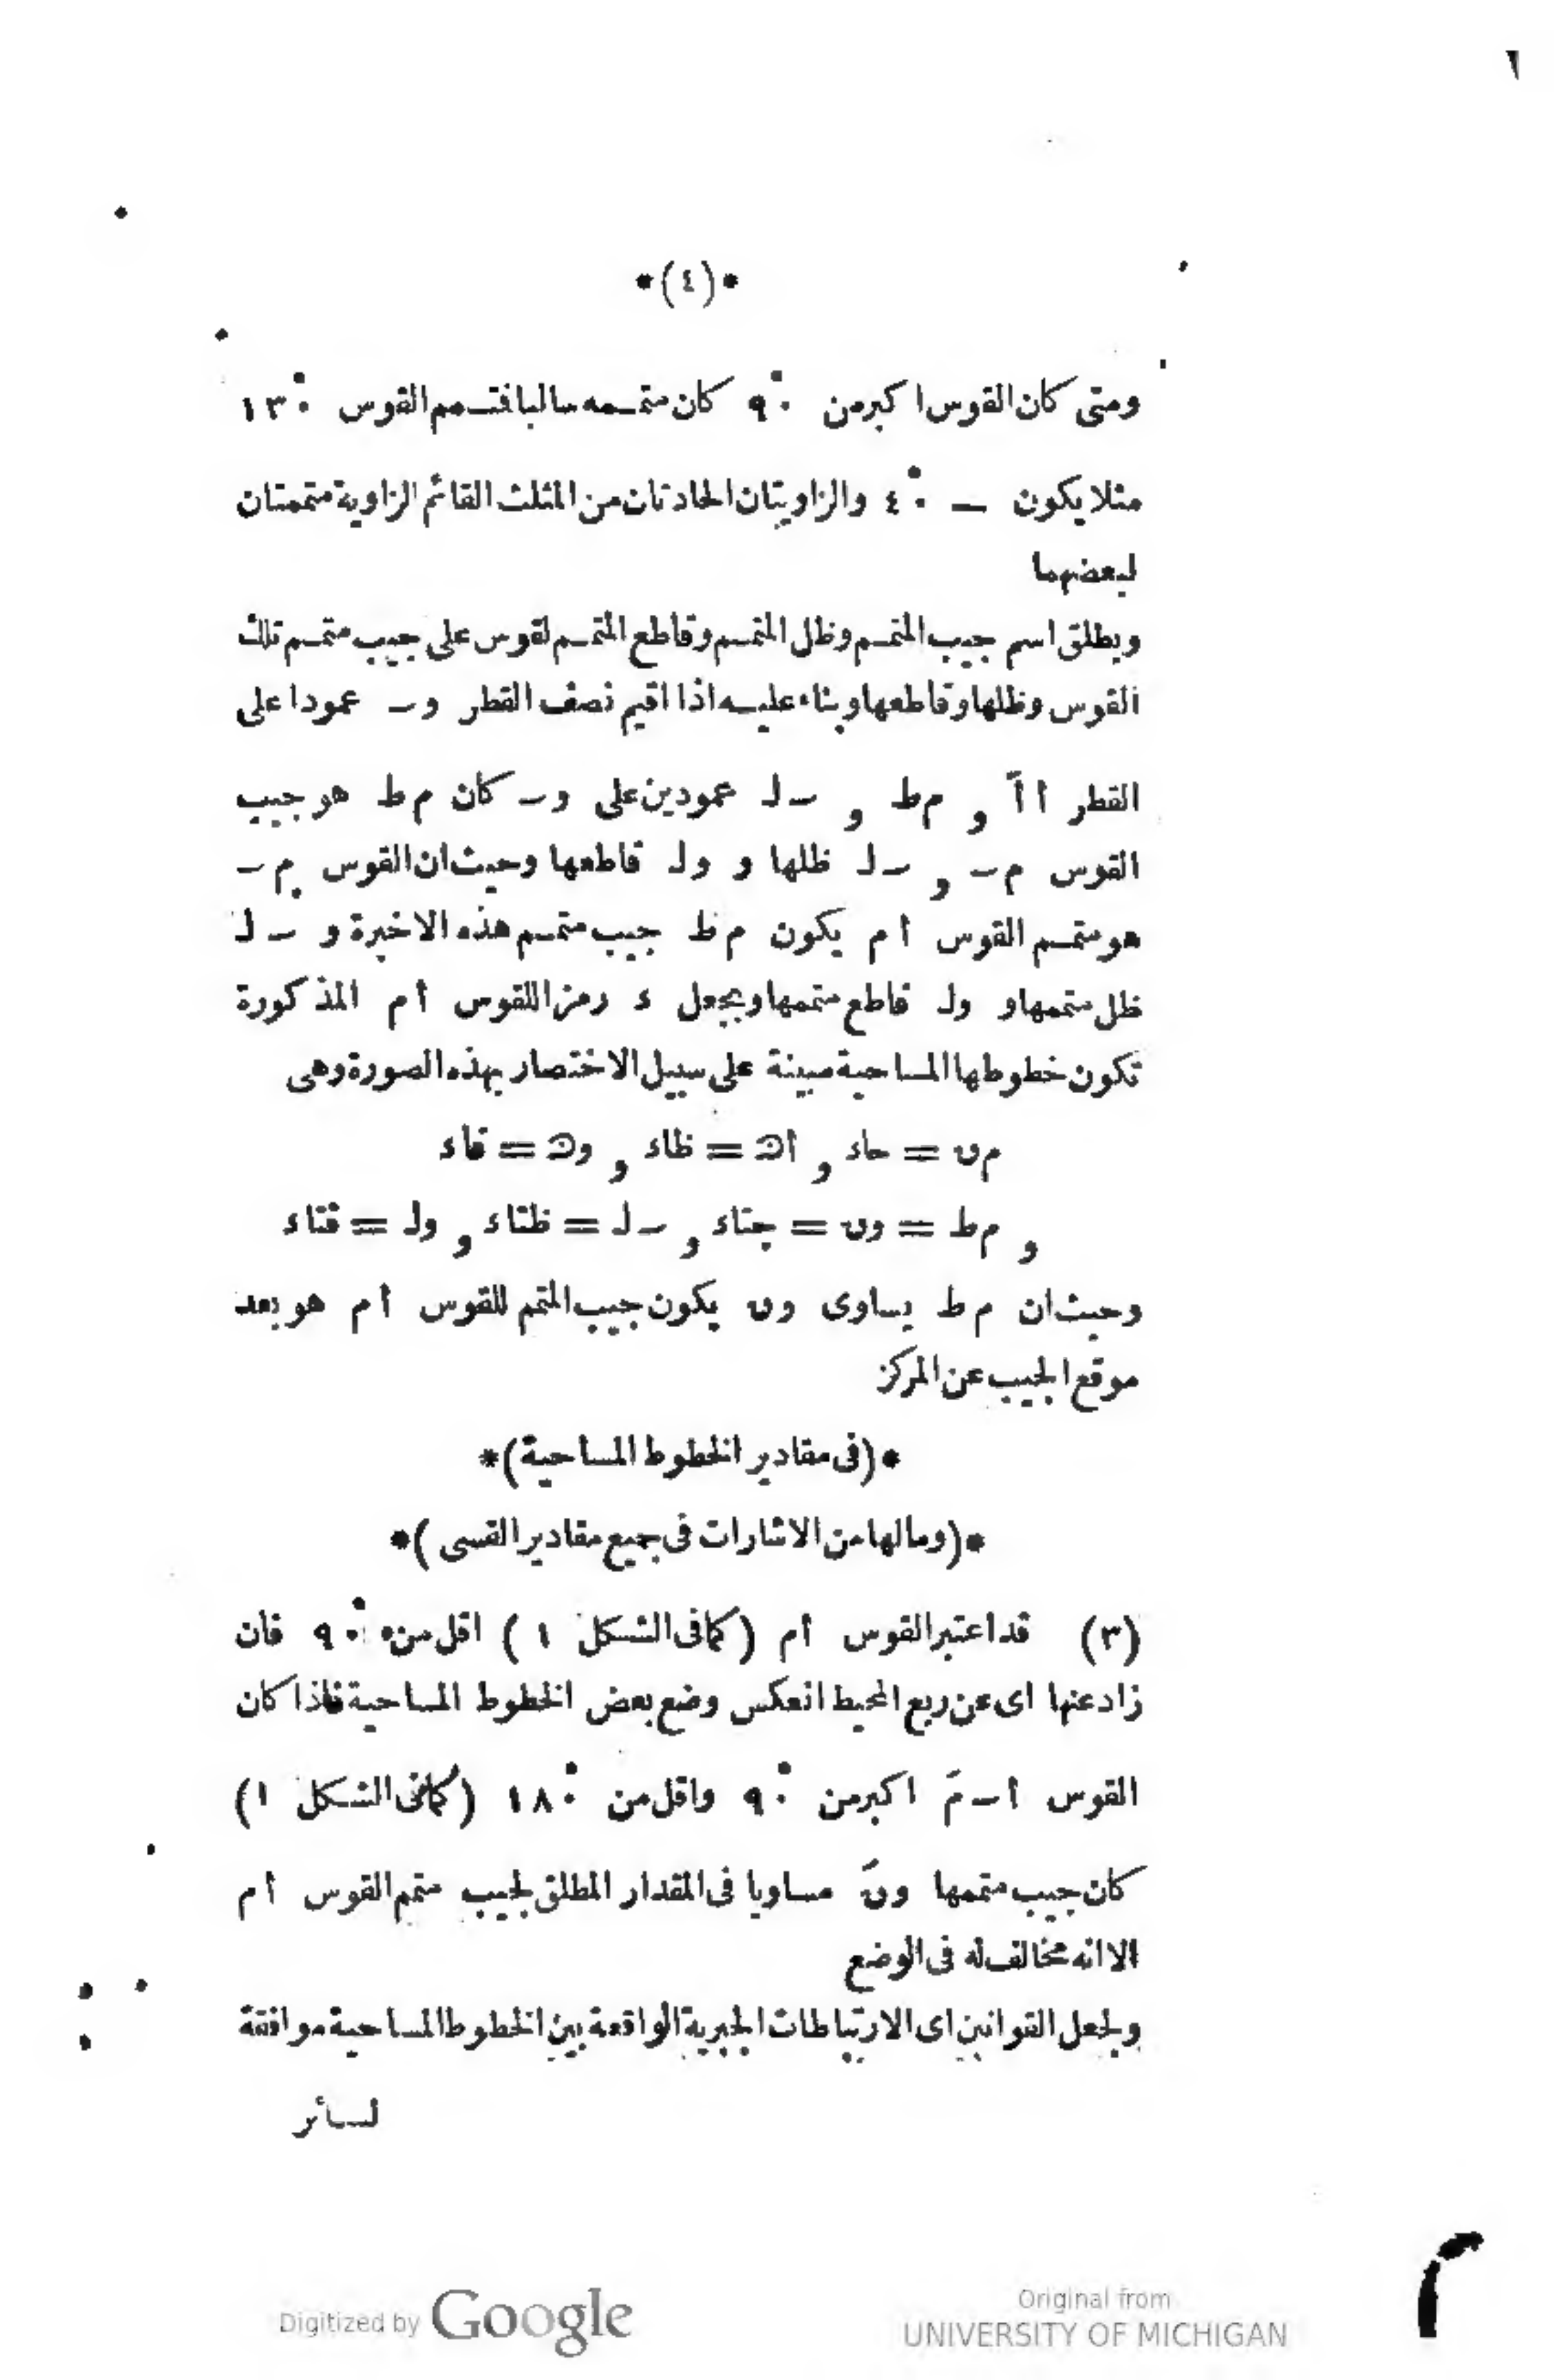 *(٤)*
ومتى كان القوس اكبر من ٩٠° كان متممه سالبا فمتمم القوس ١٣٠°
مثلا يكون — ٤٠° والزاويتان الحادتان من المثلث القائم الزاوية متممتان
لبعضهما
ويطلق اسم جيب المتمم وظل المتمم وقاطع المتمم لقوس على جيب متمم تلك
القوس وظلها وقاطعها وبناء عليه اذا اقيم نصف القطر وٮ عمودا على
القطر أ أَ و م ط و ٮ ل عمودين على وٮ كان م ط هو جيب
القوس م ٮ و ٮ ل ظلها و ول قاطعها وحيث ان القوس م ٮ
هو متمم القوس أم يكون م ط جيب متمم هذه الاخيرة و ٮ ل
ظل متممها و ول قاطع متممها وبجعل ء رمزا للقوس أم المذكورة
تكون خطوطها المساحية مبينة على سبيل الاختصار بهذه الصورة وهى
م ں = حاء و أ ك = ظاء و وك = قاء
و م ط = وں = جتاء و ٮ ل = ظتاء و ول = قتاء
وحيث ان م ط يساوى وں يكون جيب المتمم للقوس أم هو بعد
موقع الجيب عن المركز
*(فى مقادير الخطوط المساحية)*
*(ومالها من الاشارات فى جميع مقادير القسى)*
(٣) قد اعتبر القوس أم (كما فى الشكل ١) اقل من ٩٠° فان
زاد عنها اى عن ربع المحيط انعكس وضع بعض الخطوط المساحية فاذا كان
القوس أ ٮ مَ اكبر من ٩٠° واقل من ١٨٠° (كما فى الشكل ١)
كان جيب متممها وںَ مساويا فى المقدار المطلق لجيب متمم القوس أم
الا انه مخالف له فى الوضع
ولجعل القوانين اى الارتباطات الجبرية الواقعة بين الخطوط المساحية موافقة
لسائر
Digitized by Google
Original from
UNIVERSITY OF MICHIGAN